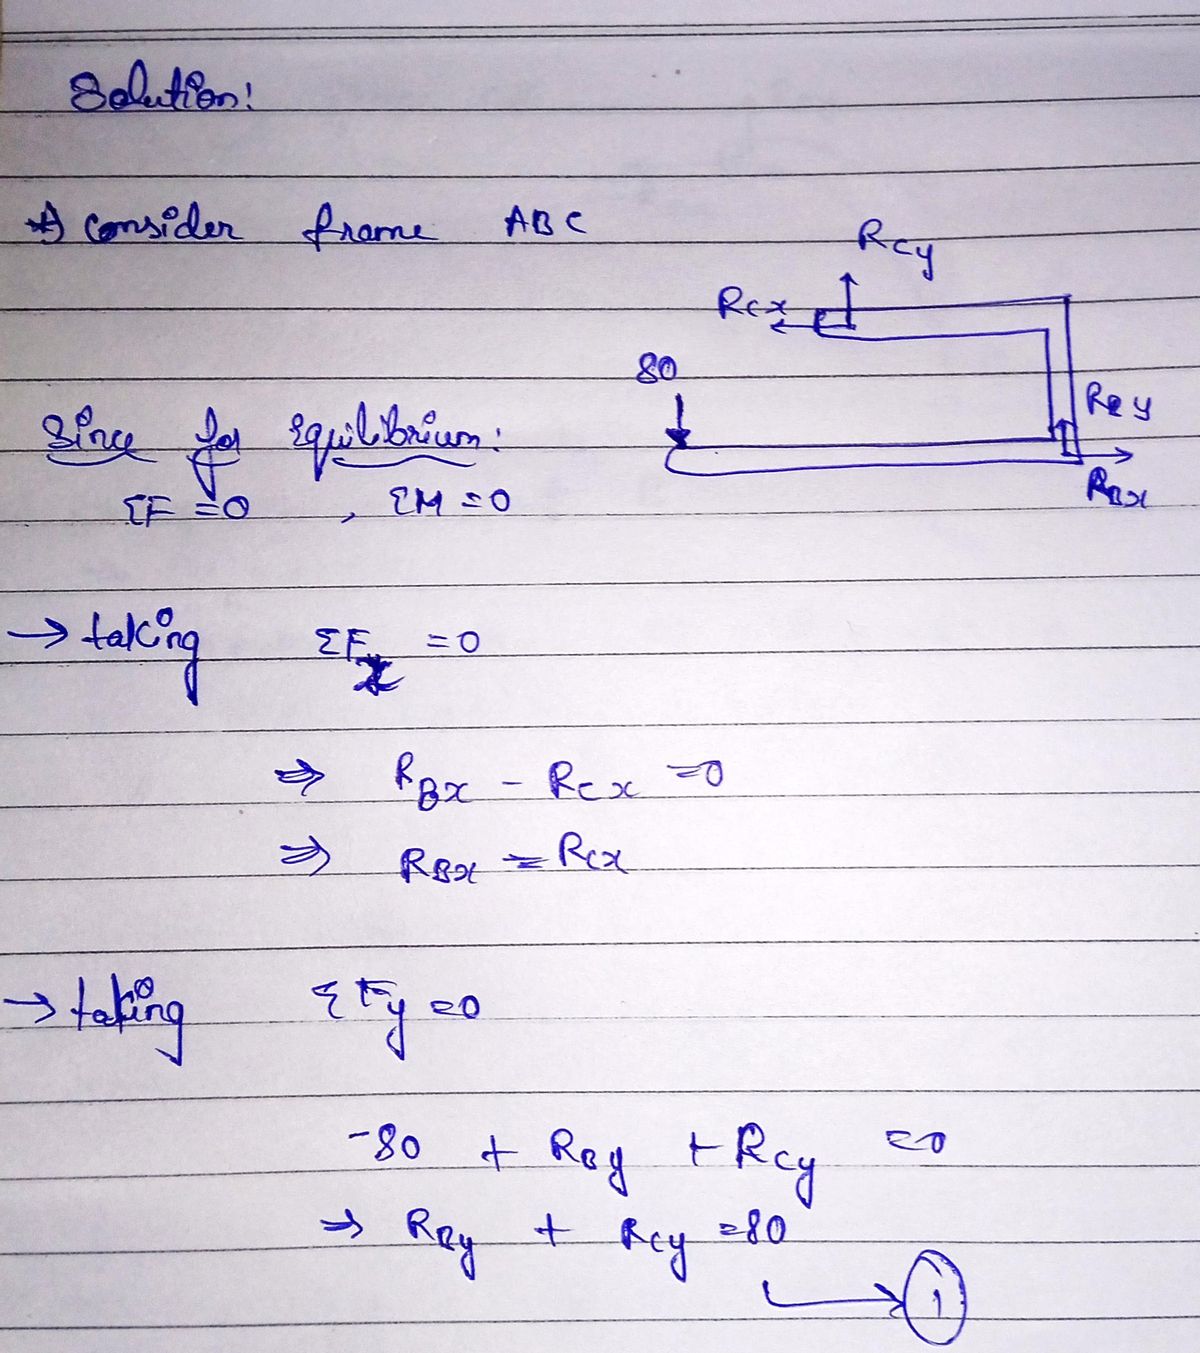 Solution:
*) consider frame ABC
Rcy
Rcx
80
Since for equilibrium:
RBy
RBx
ΣF = 0 , ΣM = 0
→ taking ΣFx = 0
⇒ RBx - Rcx = 0
⇒ RBx = Rcx
→ taking ΣFy = 0
-80 + RBy + Rcy = 0
⇒ RBy + Rcy = 80
1